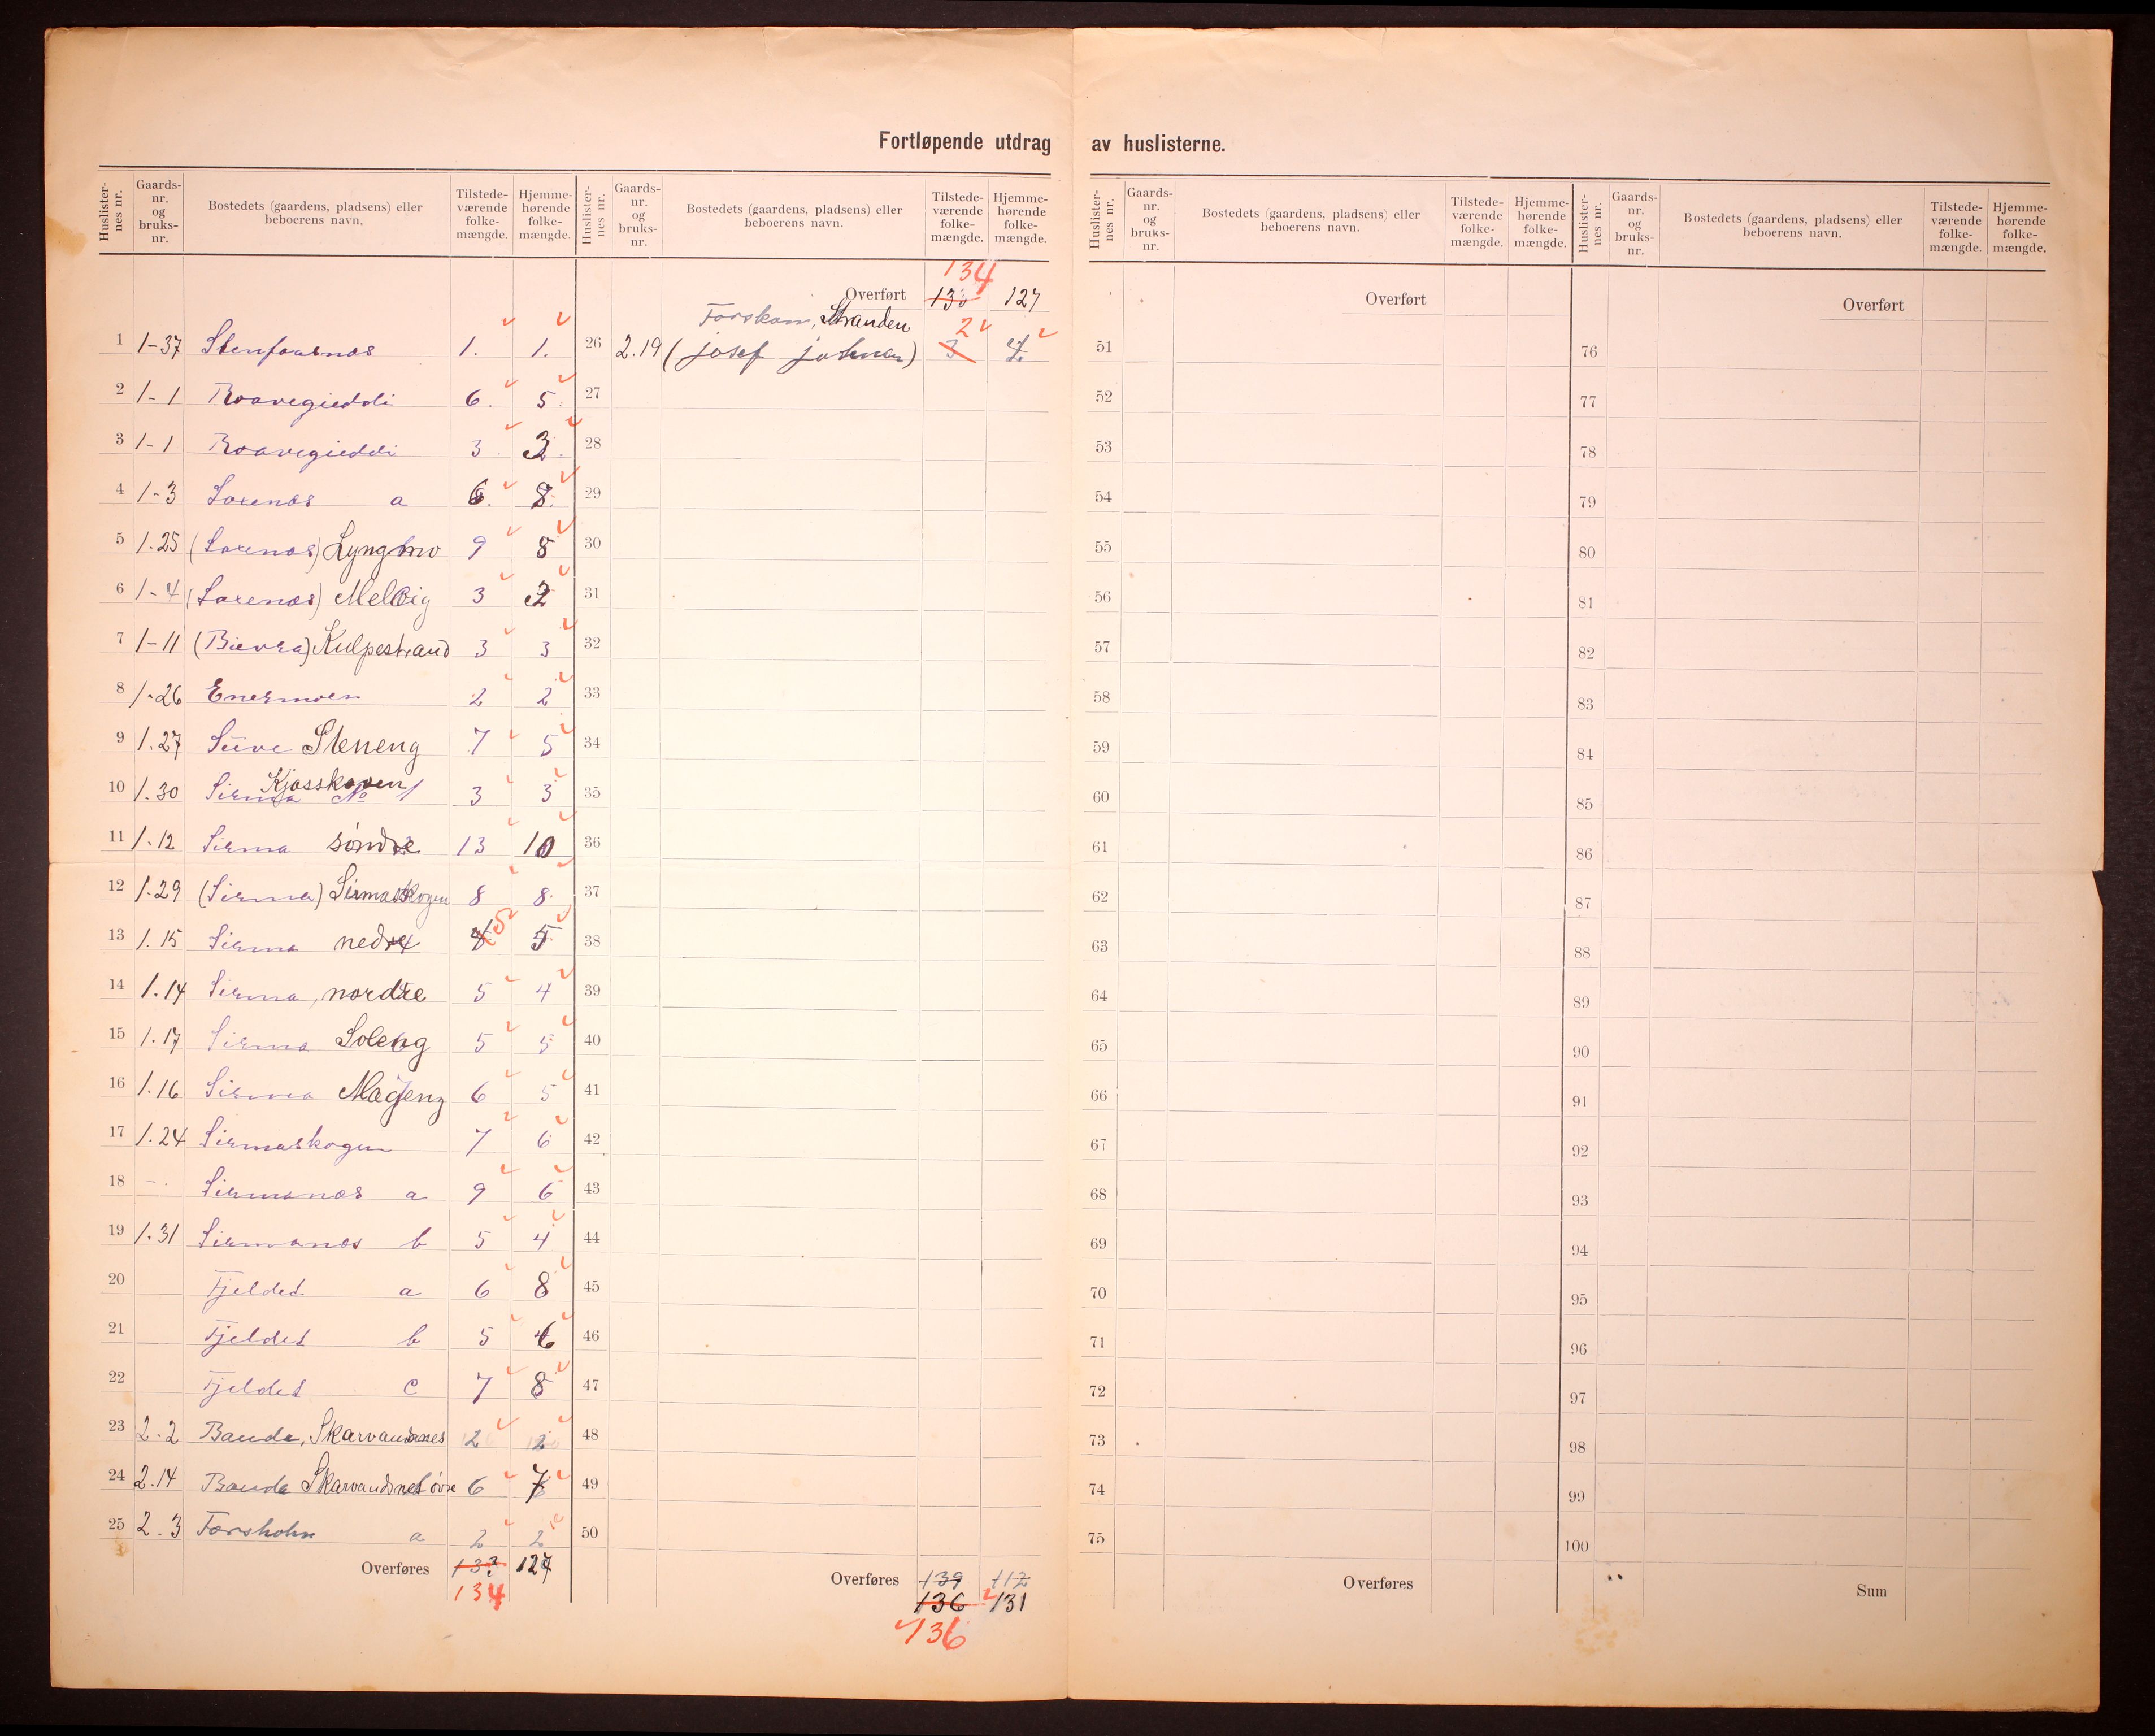 Fortløpende utdrag av huslisterne.
Huslister-nes nr. | Gaards-nr. og bruks-nr. | Bostedets (gaardens, pladsens) eller beboerens navn. | Tilstede-værende folke-mængde. | Hjemme-hørende folke-mængde.
1 1-37 Stenfossnæs 1. 1.
2 1-1 Roavegieddi 6. 5.
3 1-1 Roavegieddi 3. 3.
4 1-3 Laxenæs a 6. 8.
5 1.25 (Laxenæs) Lyngmo 9 8
6 1-4 (Laxenæs) Melbig 3 2
7 1-11 (Bievra) Kulpestrand 3 3
8 1.26 Enermoen 2 2
9 1.27 Steneng 7 5
10 1.30 Sirma No 1 Kjosskoven 3 3
11 1.12 Sirma søndre 13 10
12 1.29 (Sirma) Sirmaskogen 8 8
13 1.15 Sirma nedre 5 5
14 1.14 Sirma, nordre 5 4
15 1.17 Sirma Soleng 5 5
16 1.16 Sirma Mageng 6 5
17 1.24 Sirmaskogen 7 6
18 - Sirmanæs a 9 6
19 1.31 Sirmanæs b 5 4
20 Fjeldet a 6 8
21 Fjeldet b 5 6
22 Fjeldet c 7 8
23 2.2 Bauda, Skarvandsnes 2 2
24 2.14 Bauda Skarvandsnes øvre 6 7
25 2.3 Forsholm a 2 2
Overføres 127
134
Huslister-nes nr. | Gaards-nr. og bruks-nr. | Bostedets (gaardens, pladsens) eller beboerens navn. | Tilstede-værende folke-mængde. | Hjemme-hørende folke-mængde.
134
Overført 130 127
Stranden
26 2.19 (Josef Johnsen) 3 2 4
27
28
29
30
31
32
33
34
35
36
37
38
39
40
41
42
43
44
45
46
47
48
49
50
Overføres 139 112
136 131
136
Huslister-nes nr. | Gaards-nr. og bruks-nr. | Bostedets (gaardens, pladsens) eller beboerens navn. | Tilstede-værende folke-mængde. | Hjemme-hørende folke-mængde.
Overført
51
52
53
54
55
56
57
58
59
60
61
62
63
64
65
66
67
68
69
70
71
72
73
74
75
Overføres
Huslister-nes nr. | Gaards-nr. og bruks-nr. | Bostedets (gaardens, pladsens) eller beboerens navn. | Tilstede-værende folke-mængde. | Hjemme-hørende folke-mængde.
Overført
76
77
78
79
80
81
82
83
84
85
86
87
88
89
90
91
92
93
94
95
96
97
98
99
100
Sum